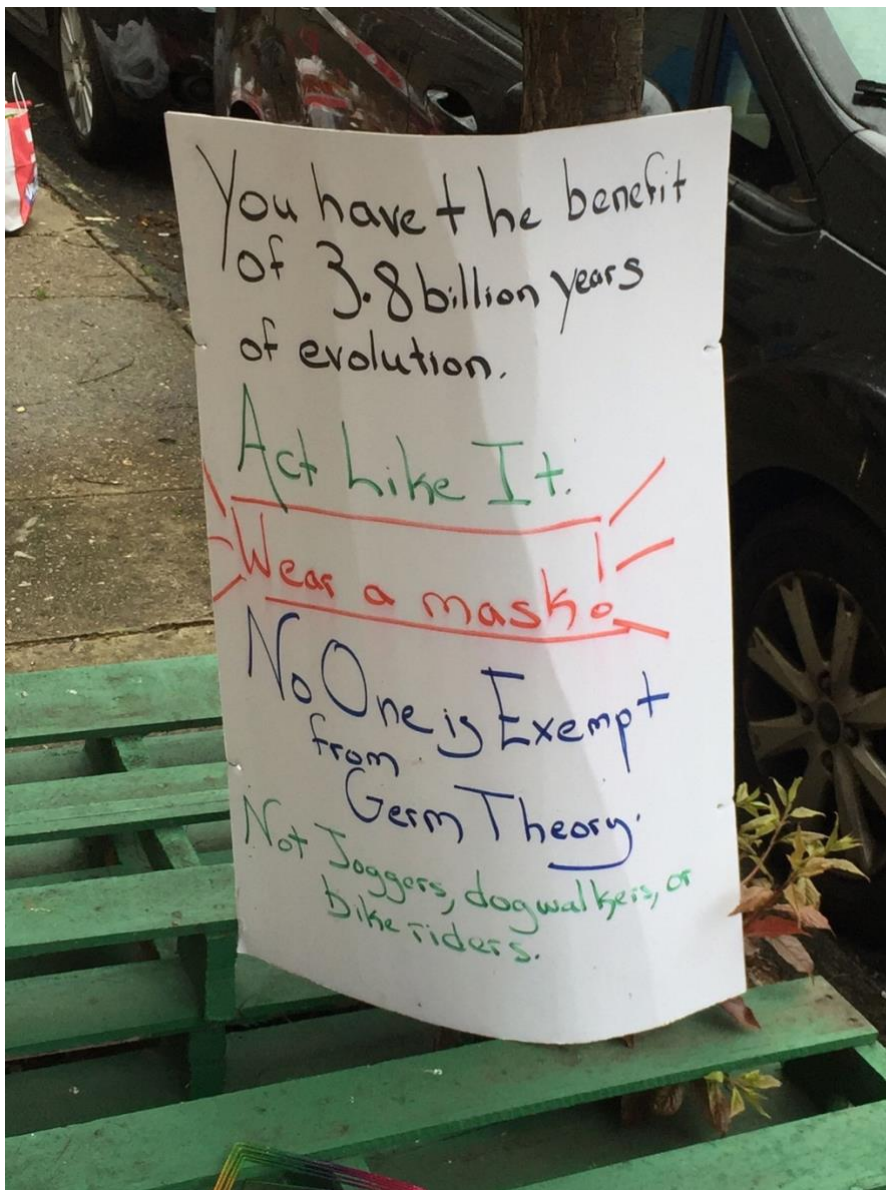 You have the benefit
of 3.8 billion years
of evolution.
Act Like It.
Wear a mask!
No One is Exempt
from
Germ Theory.
Not Joggers, dogwalkers, or
bike riders.